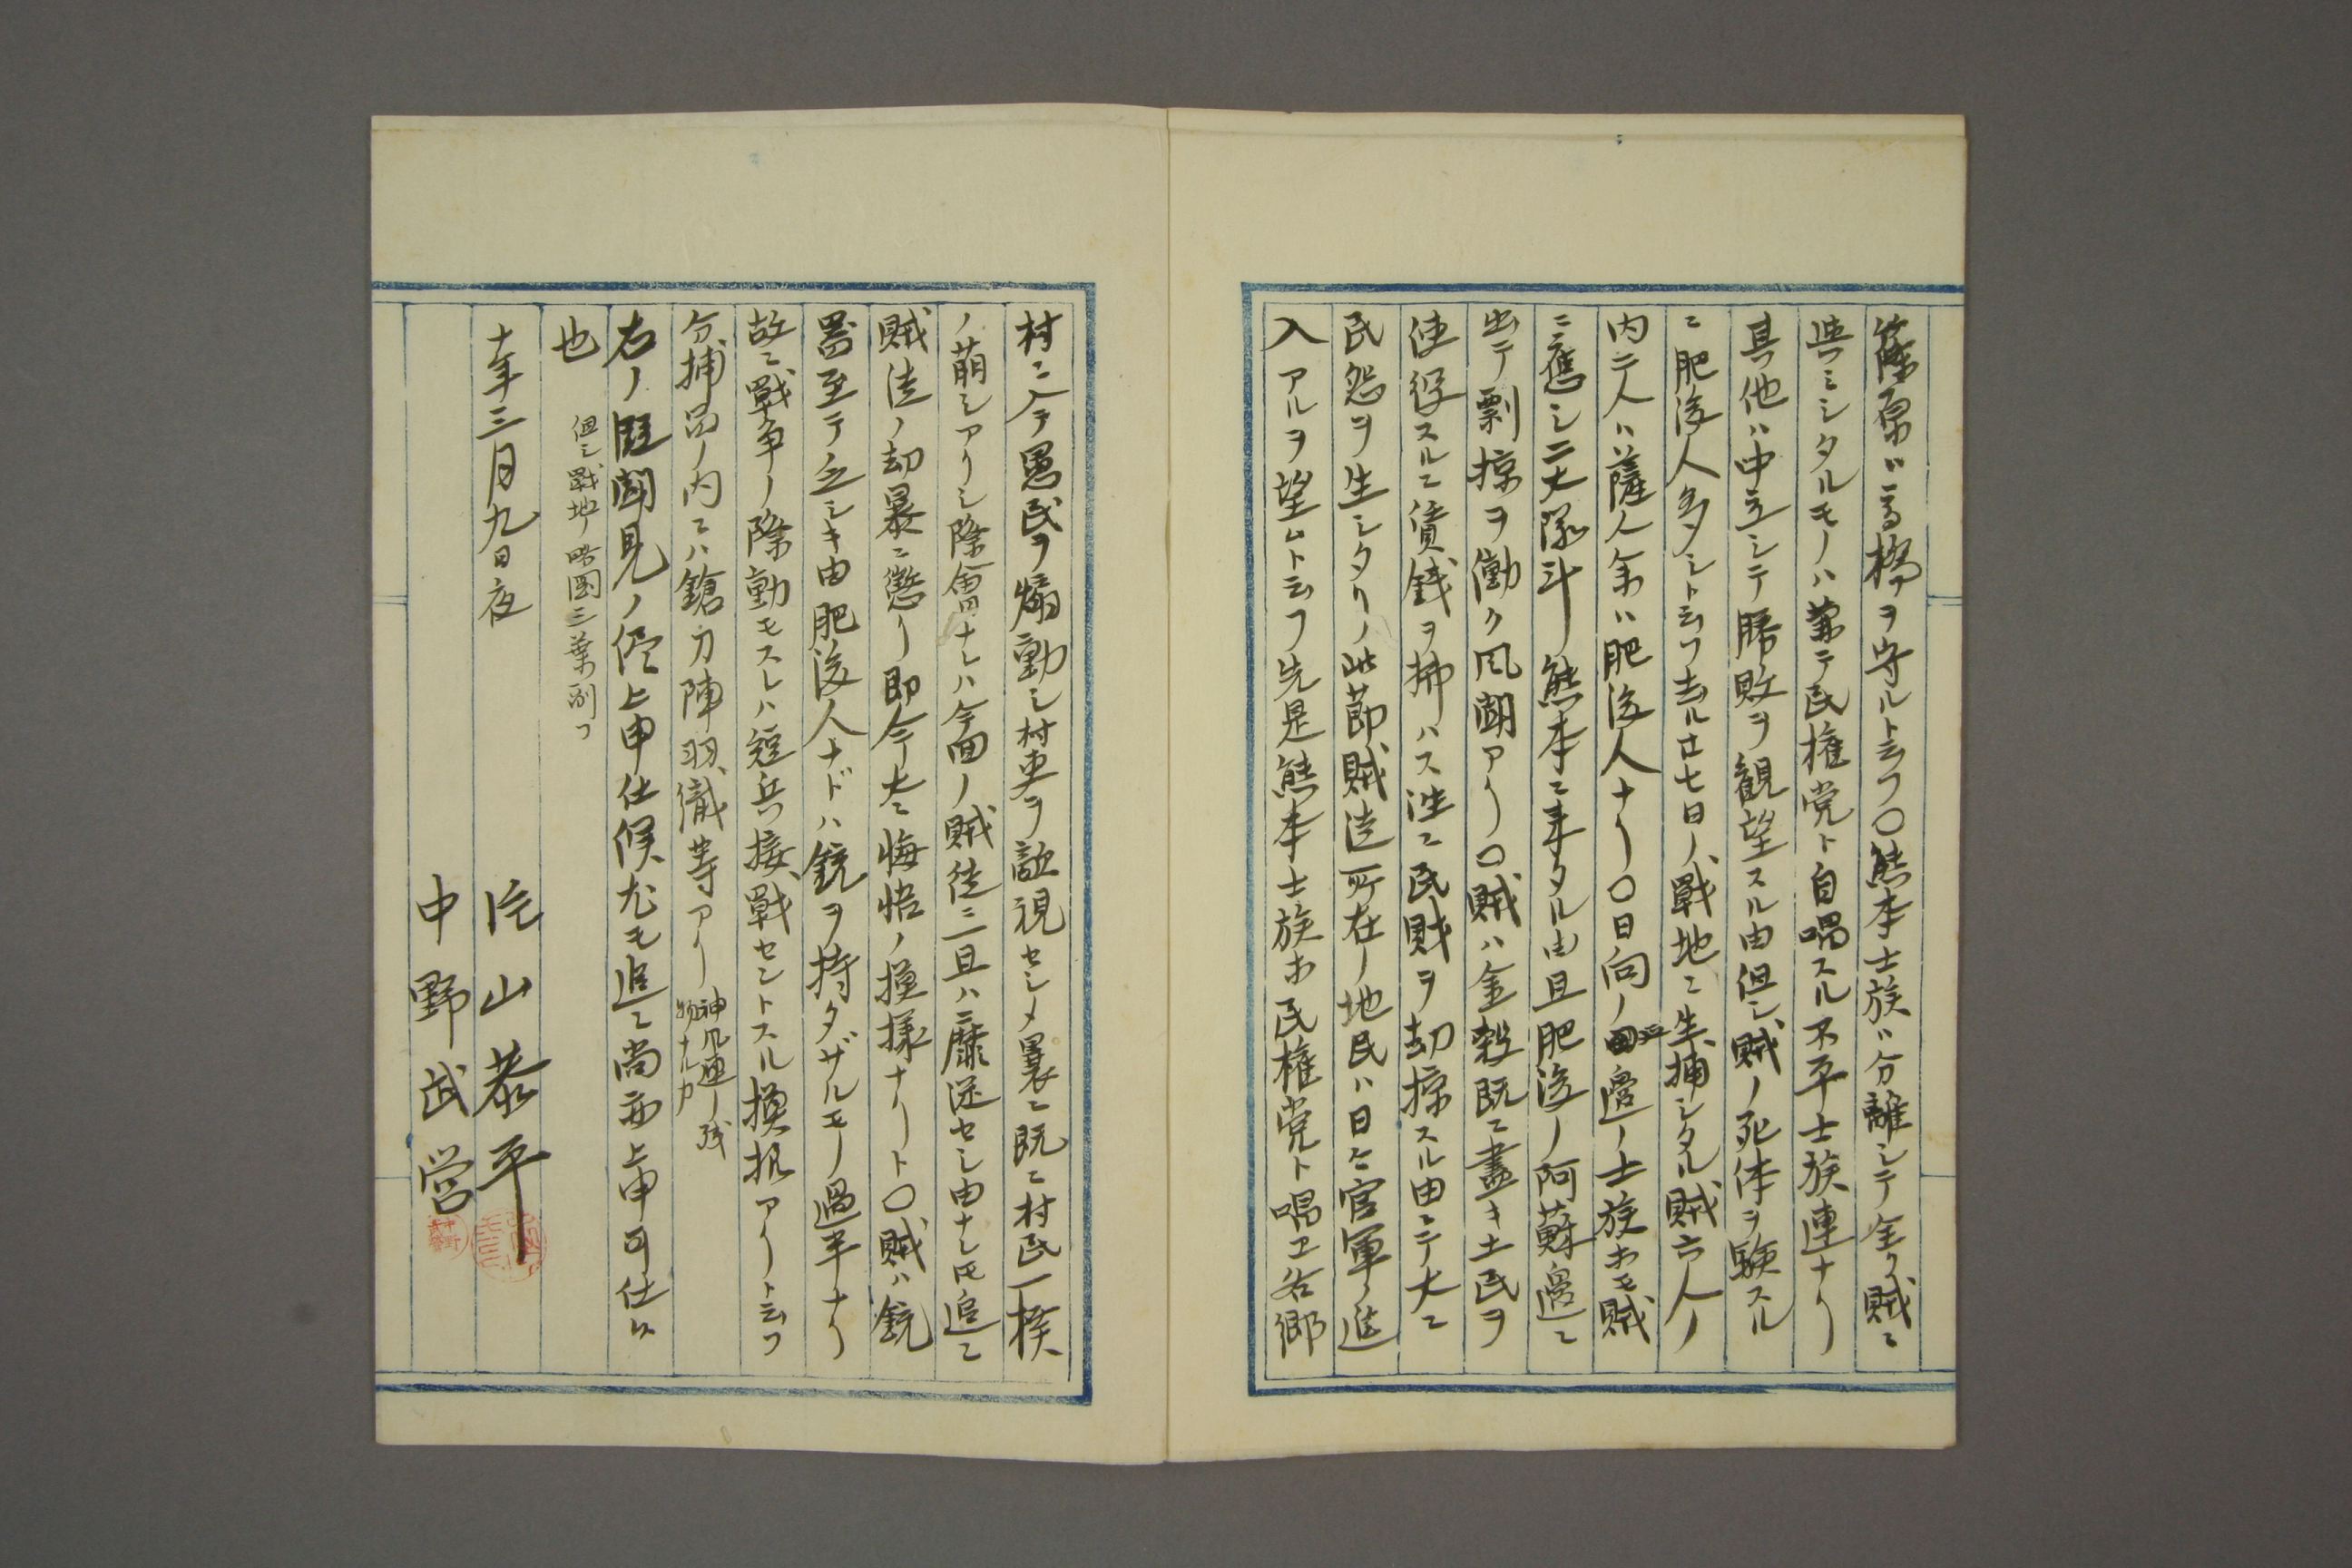 篠原ハ高橋ヲ守ルト云フ〇熊本士族ハ分離シテ全ク賊ニ
與ミシタルモノハ兼テ民権党ト自唱スル不平士族連ナリ
其他ハ中立シテ勝敗ヲ観望スル由但シ賊ノ死体ヲ験スル
ニ肥後人多シト云フ去ル廿七日ノ戦地ニ生捕シタル賊六人ノ
内二人ハ薩人余ハ肥後人ナリ〇日向ノ邉ノ士族ホモ賊
ニ應シ二大隊斗リ熊本ニ来タル由且肥後ノ阿蘇邉ニ
出テ剽掠ヲ働ク風聞アリ〇賊ハ金穀既ニ盡キ土民ヲ
使役スルニ賃銭ヲ拂ハス洋ニ民財ヲ劫掠スル由ニテ大ニ
民怨ヲ生シタリ此節賊徒所在ノ地民ハ日々官軍ノ進
入アルヲ望ムト云フ先是熊本士族ホ民権党ト唱エ各郷
村ニ入テ愚民ヲ煽動シ村吏ヲ敵視セシメ曩ニ既ニ村民一揆
ノ萌シアリシ際會ナレハ今回ノ賊徒ニ一旦ハ靡従セシ由ナレ𪜈追々
賊徒ノ劫暴ニ懲リ即今大ニ悔悟ノ模様ナリト〇賊ハ銃
器至テ乏シキ由肥後人ナドハ銃ヲ持タザルモノ過半ナリ
故ニ戰争ノ際動モスレハ短兵接戰セントスル模様アリト云フ
分捕品ノ内ニハ鎗刀陣羽織等アリ神風連ノ残物ナルカ
右ノ趣聞見ノ侭上申仕候尤モ追々尚亦上申可仕候
也 但シ戰地ノ略圖三葉副フ
十年三月九日夜
片山恭平
中野武営